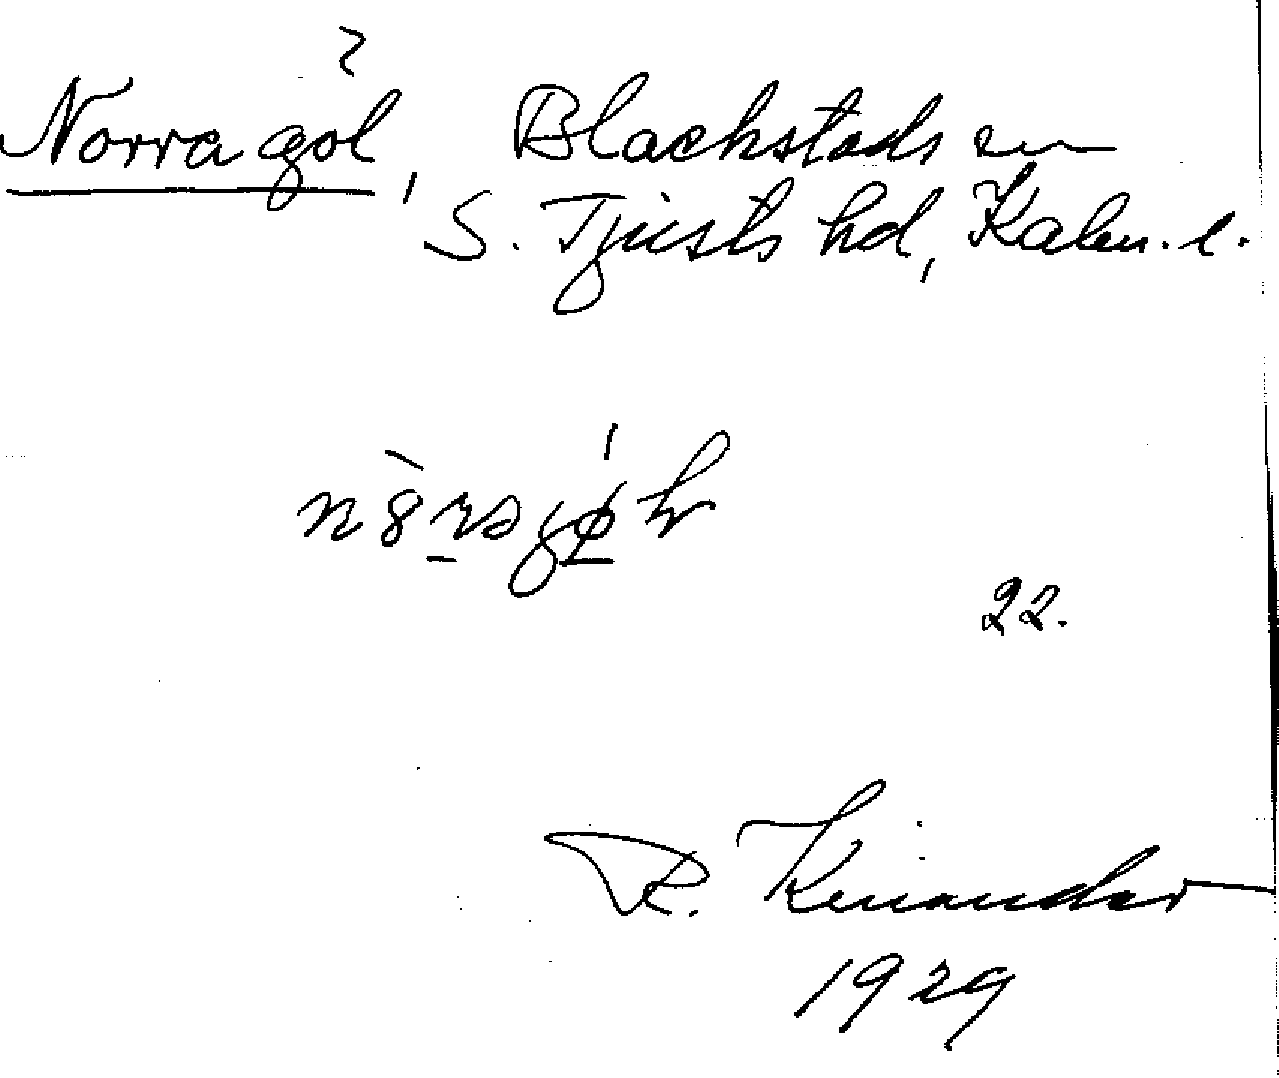 Norra göl, Blackstads sn
S. Tjusts hd, Kalm. l.
22.
R. Kinander
1929